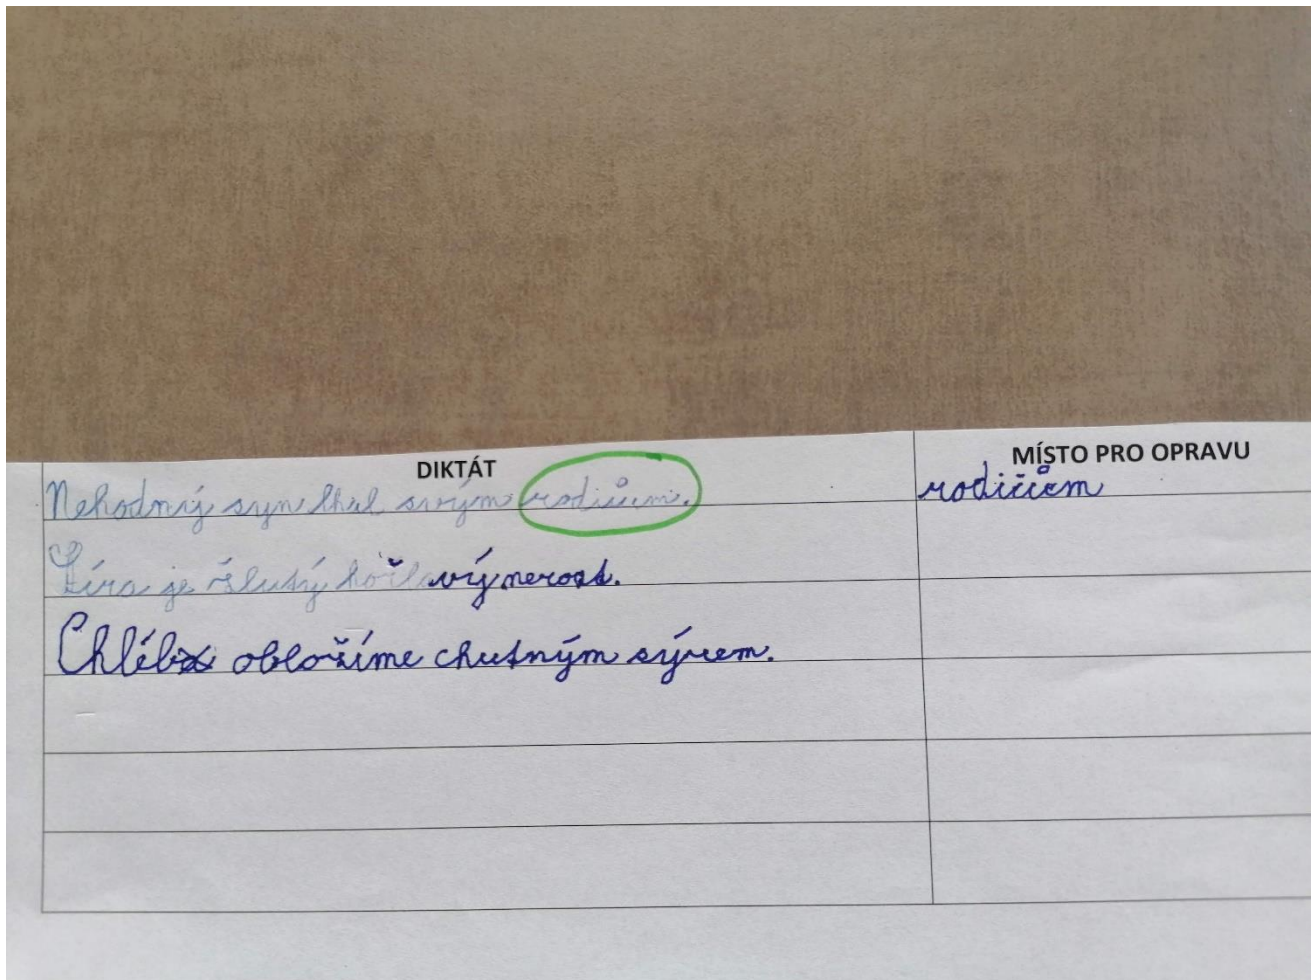 DIKTÁT
MÍSTO PRO OPRAVU
Nehodný syn lhal svým rodičům.
rodičům
Síra je žlutý hořlavý nerost.
Chléb obložíme chutným sýrem.